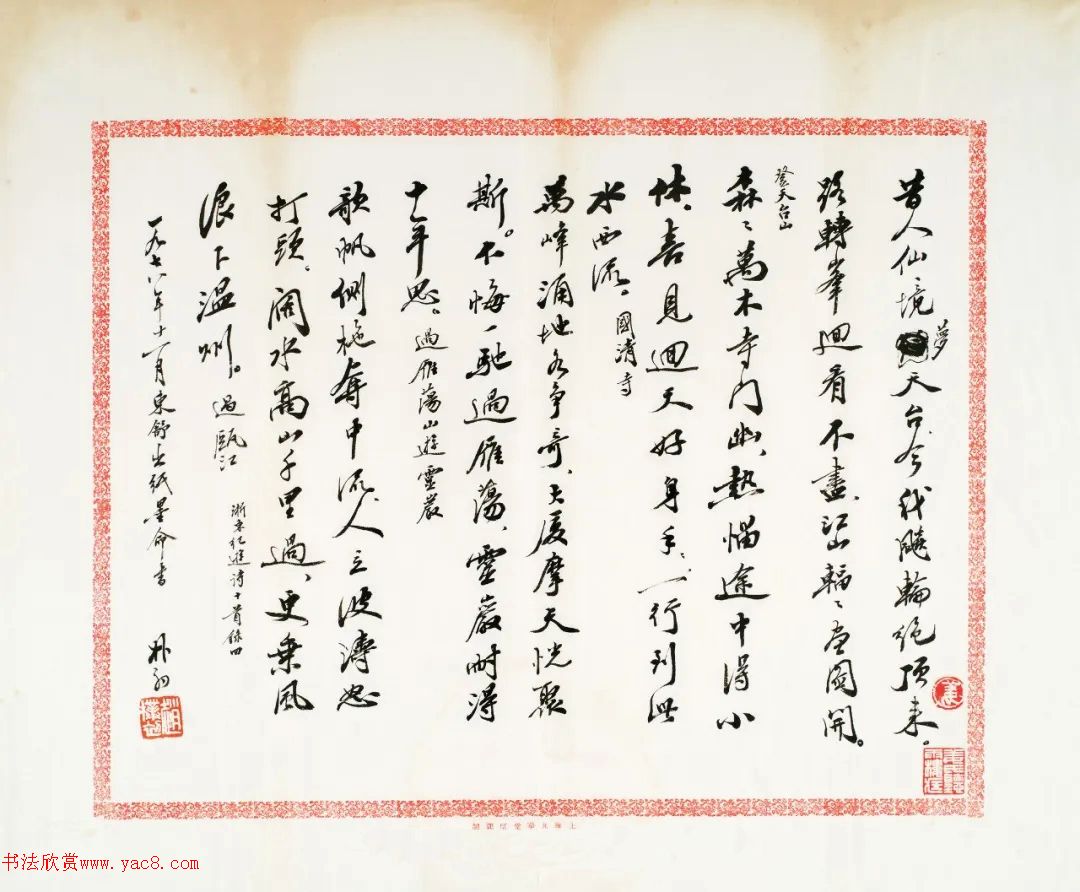 昔人仙境夢天台、今我飈輪絶頂来。
路轉峯迴看不盡、江山輻輻畫圖開。
登天台山
森〻萬木寺門幽、熱惱途中得小
休、喜見迴天好身手、一行到此
水西流。國清寺
萬峰涌地各争奇、大厦摩天恍聚
斯。不悔一馳過雁蕩、靈巖酬得
十年思。過雁蕩山遊靈巖
歌帆側柂奪中流、人立波濤怒
打頭、闊水高山千里過、更乘風
浪下温州。過甌江
浙東紀遊詩十首録四
一九七八年十一月東舒出紙墨命書
朴初
书法欣赏www.yac8.com